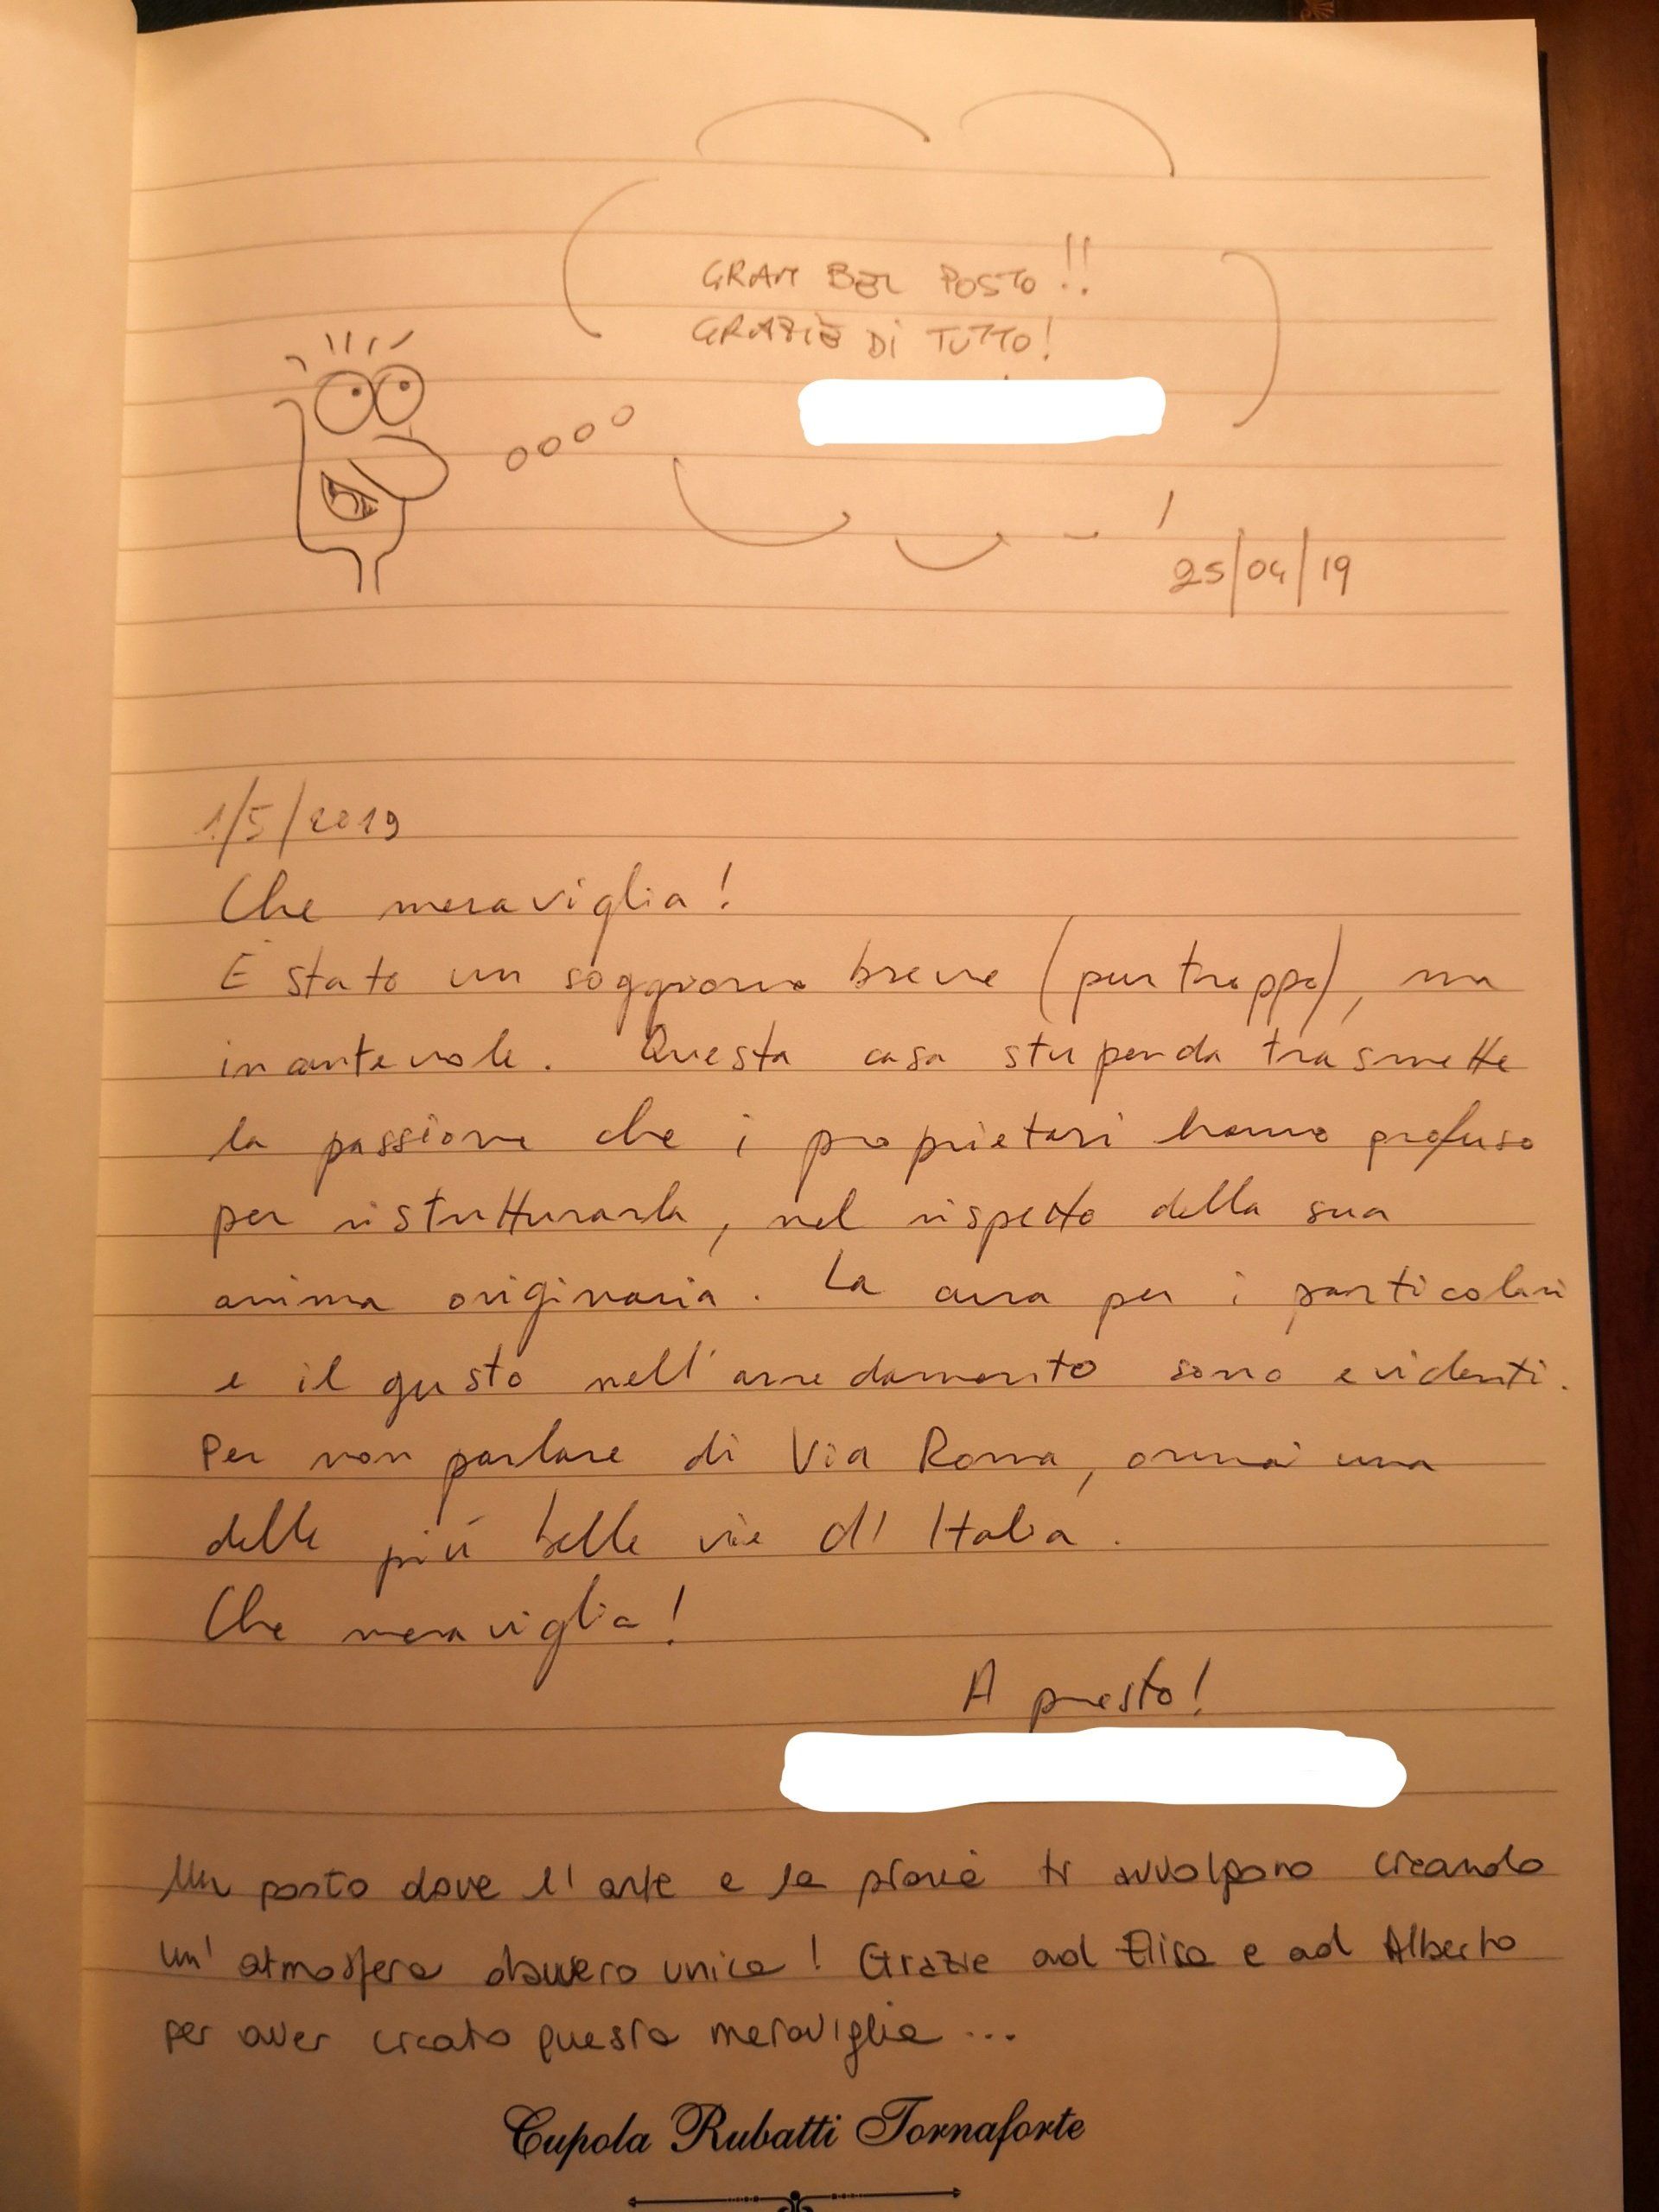 GRAN BEL POSTO!!
GRAZIE DI TUTTO!
25/04/19
1/5/2019
Che meraviglia!
È stato un soggiorno breve (purtroppo), ma
incantevole. Questa casa stupenda trasmette
la passione che i proprietari hanno profuso
per ristrutturarla, nel rispetto della sua
anima originaria. La cura per i particolari
e il gusto nell'arredamento sono evidenti.
Per non parlare di Via Roma, ormai una
delle più belle vie d'Italia.
Che meraviglia!
A presto!
Un posto dove l'arte e la storia ti avvolgono creando
un'atmosfera davvero unica! Grazie ad Elisa e ad Alberto
per aver creato questa meraviglia...
Cupola Rubatti Tornaforte